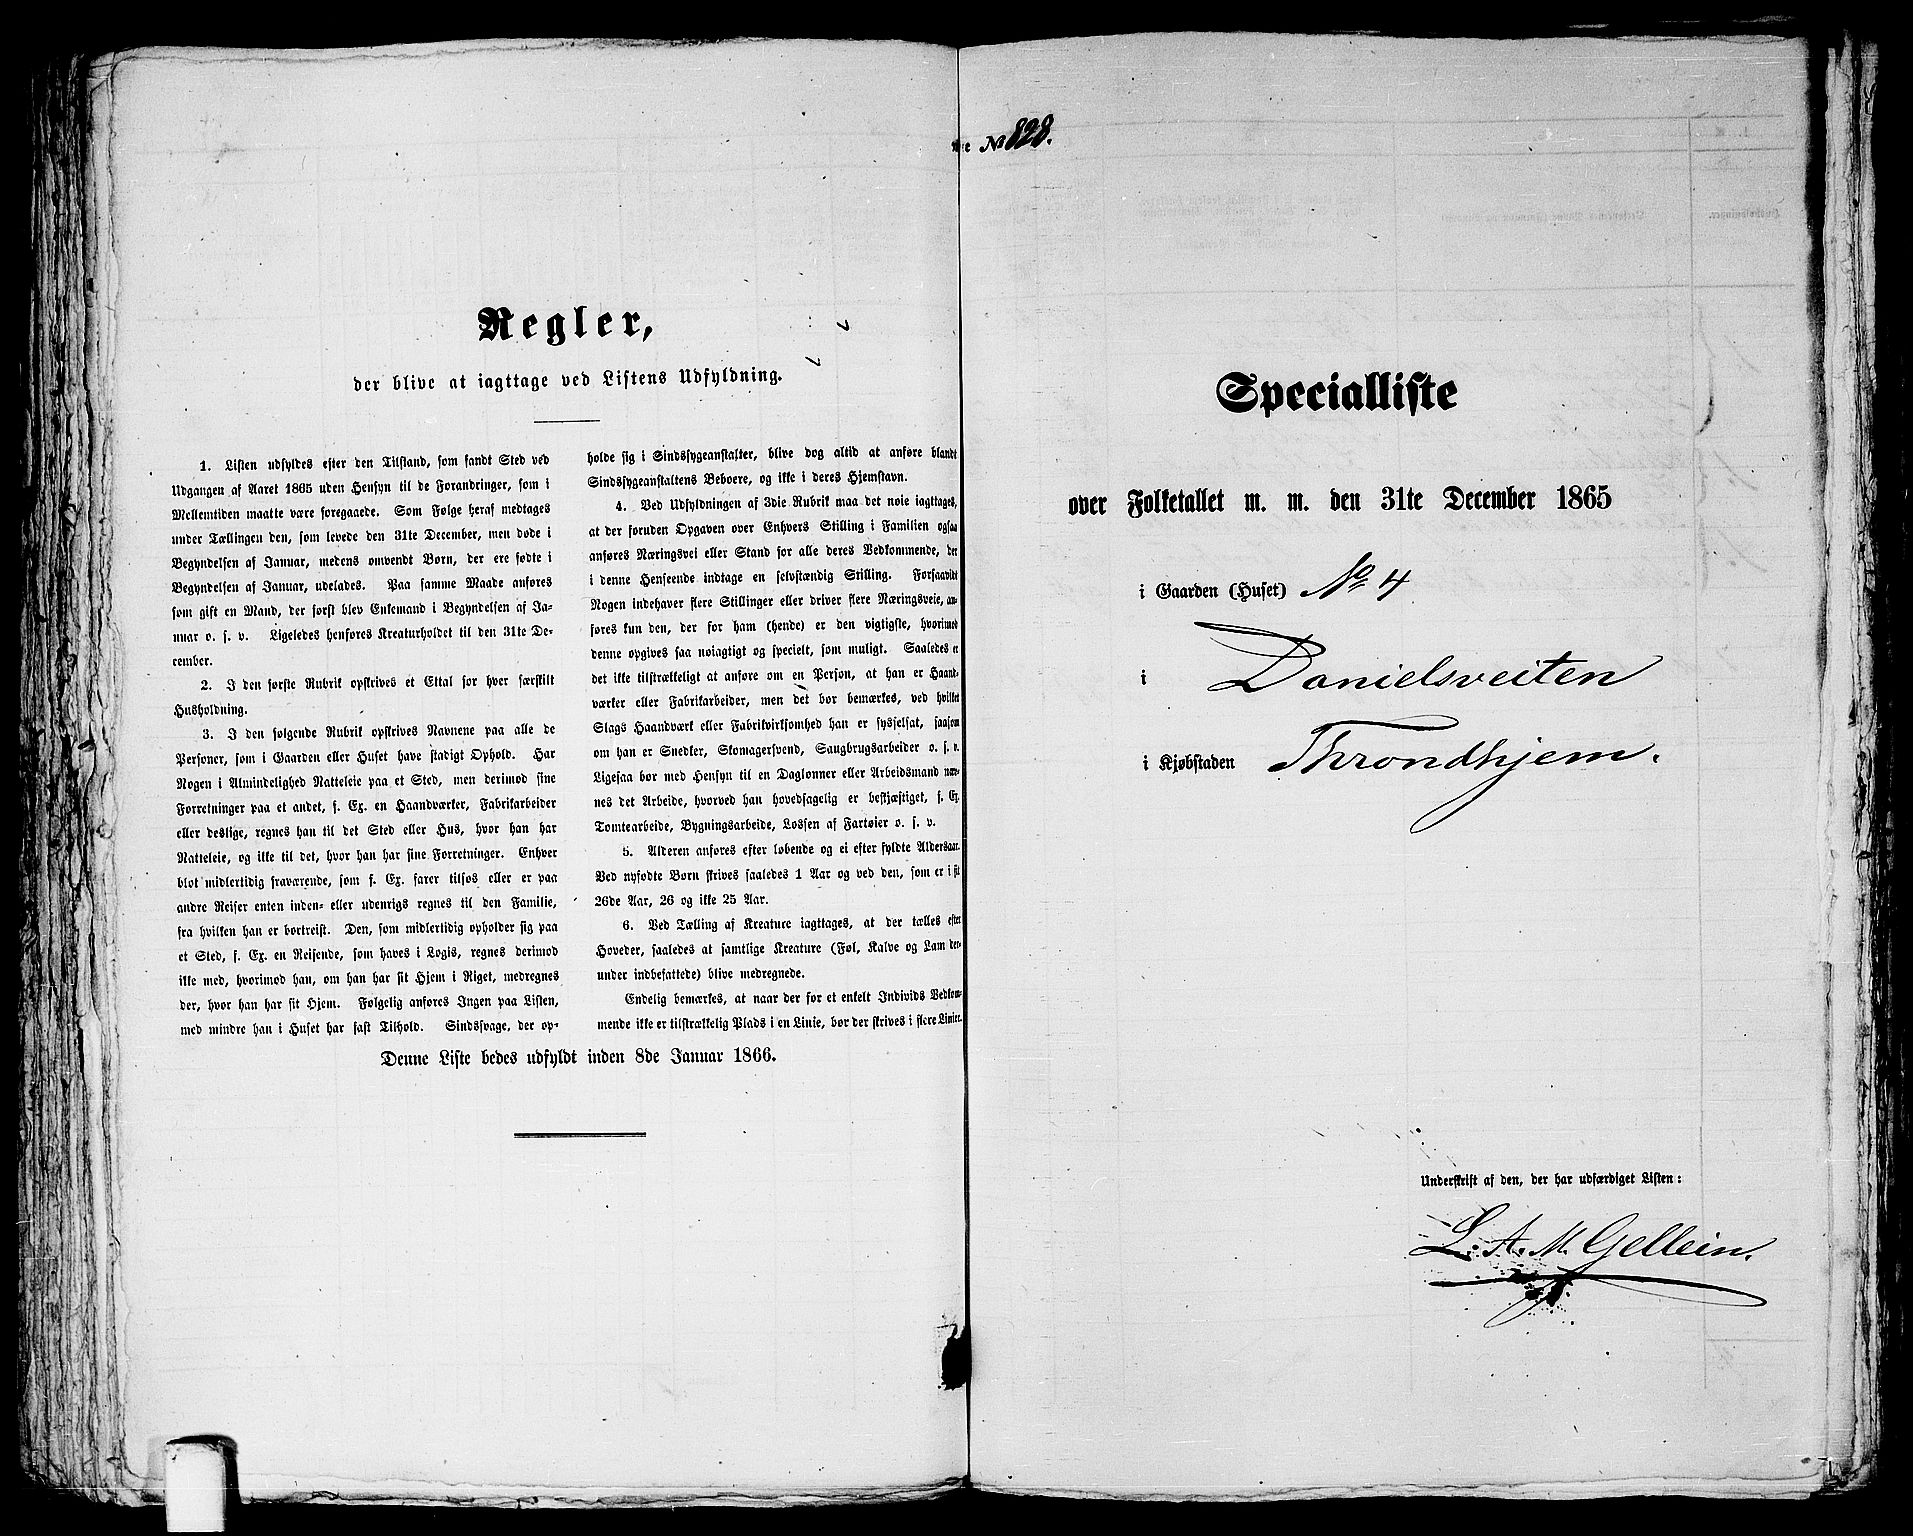 Regler,
der blive at iagttage ved Listens Udfyldning.
1. Listen udfyldes efter den Tilstand, som fandt Sted ved
Udgangen af Aaret 1865 uden Hensyn til de Forandringer, som i
Mellemtiden maatte være foregaaede. Som Følge heraf medtages
under Tællingen den, som levede den 31te December, men døde i
Begyndelsen af Januar, medens omvendt Børn, der ere fødte i
Begyndelsen af Januar, udelades. Paa samme Maade anføres
som gift en Mand, der først blev Enkemand i Begyndelsen af Ja-
nuar o. s. v. Ligeledes henføres Kreaturholdet til den 31te De-
cember.
2. I den første Rubrik opskrives et Ettal for hver særskilt
Husholdning.
3. I den følgende Rubrik opskrives Navnene paa alle de
Personer, som i Gaarden eller Huset have stadigt Ophold. Har
Nogen i Almindelighed Natteleie paa et Sted, men derimod sine
Forretninger paa et andet, f. Ex. en Haandværker, Fabrikarbeider
eller deslige, regnes han til det Sted eller Hus, hvor han har
Natteleie, og ikke til det, hvor han har sine Forretninger. Enhver
blot midlertidig fraværende, som f. Ex. farer tilsøs eller er paa
andre Reiser enten inden- eller udenrigs regnes til den Familie,
fra hvilken han er bortreist. Den, som midlertidig opholder sig paa
et Sted, f. Ex. en Reisende, som haves i Logis, regnes derimod
ikke med, hvorimod han, om han har sit Hjem i Riget, medregnes
der, hvor han har sit Hjem. Følgelig anføres Ingen paa Listen,
med mindre han i Huset har fast Tilhold. Sindssvage, der op-
holde sig i Sindssygeanstalter, blive dog altid at anføre blandt
Sindssygeanstaltens Beboere, og ikke i deres Hjemstavn.
4. Ved Udfyldningen af 3die Rubrik maa det nøie iagttages,
at der foruden Opgaven over Enhvers Stilling i Familien ogsaa
anføres Næringsvei eller Stand for alle deres Vedkommende, der
i denne Henseende indtage en selvstændig Stilling. Forsaavidt
Nogen indehaver flere Stillinger eller driver flere Næringsveie, an-
føres kun den, der for ham (hende) er den vigtigste, hvorimod
denne opgives saa nøiagtigt og specielt, som muligt. Saaledes er
det ikke tilstrækkeligt at anføre om en Person, at han er Haand-
værker eller Fabrikarbeider, men det bør bemærkes, ved hvilket
Slags Haandværk eller Fabrikvirksomhed han er sysselsat, saasom
om han er Snedker, Skomagersvend, Saugbrugsarbeider o. s. v.
Ligesaa bør med Hensyn til en Daglønner eller Arbeidsmand næv-
nes det Arbeide, hvorved han hovedsagelig er beskjæftiget, f. Ex.
Tomtearbeide, Bygningsarbeide, Lossen af Fartøier o. s. v.
5. Alderen anføres efter løbende og ei efter fyldte Aldersaar.
Ved nyfødte Børn skrives saaledes 1 Aar og ved den, som er i sit
26de Aar, 26 og ikke 25 Aar.
6. Ved Tælling af Kreature iagttages, at der tælles efter
Hoveder, saaledes at samtlige Kreature (Føl, Kalve og Lam der-
under indbefattede) blive medregnede.
Endelig bemærkes, at naar der for et enkelt Individs Vedkom-
mende ikke er tilstrækkelig Plads i en Linie, bør der skrives i flere Linier.
Denne Liste bedes udfyldt inden 8de Januar 1866.
№ 828.
Specialliste
over Folketallet m. m. den 31te December 1865
i Gaarden (Huset) No 4
i Danielsveiten
i Kjøbstaden Throndhjem.
Underskrift af den, der har udfærdiget Listen:
L. A. M. Gellein.